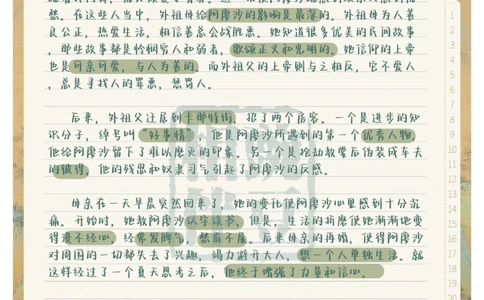 想。在这些人当中，外祖母给阿廖沙的影响是最深的。外祖母为人善
良公正，热爱生活，相信善总会战胜恶。她知道很多优美的民间故事
，那些故事都是怜悯穷人和弱者，歌颂正义和光明的。她信仰的上帝
也是可亲可爱，与人为善的。而外祖父的上帝则与之相反，它不爱人
，总是寻找人的罪恶，惩罚人。
后来，外祖父迁居到卡那特街，招了两个房客。一个是进步的知
识分子，绰号叫“好事情”，他是阿廖沙所遇到的第一个优秀人物，
他给阿廖沙留下了难以磨灭的印象。另一个是抢劫教堂后伪装成车夫
的彼得，他的残忍和奴隶习气引起了阿廖沙的反感。
母亲在一天早晨突然回来了，她的变化使阿廖沙心里感到十分沉
痛。开始时，她教阿廖沙认字读书，但是，生活的折磨使她渐渐地变
得漫不经心，经常发脾气，愁眉不展。后来母亲的再婚，使得阿廖沙
对周围的一切都失去了兴趣，竭力避开大人，想一个人单独生活。就
这样经过了一个夏天思考之后，他终于增强了力量和信心。
1
2
3
4
5
6
7
8
9
10
11
12
13
14
15
16
17
18
19
20